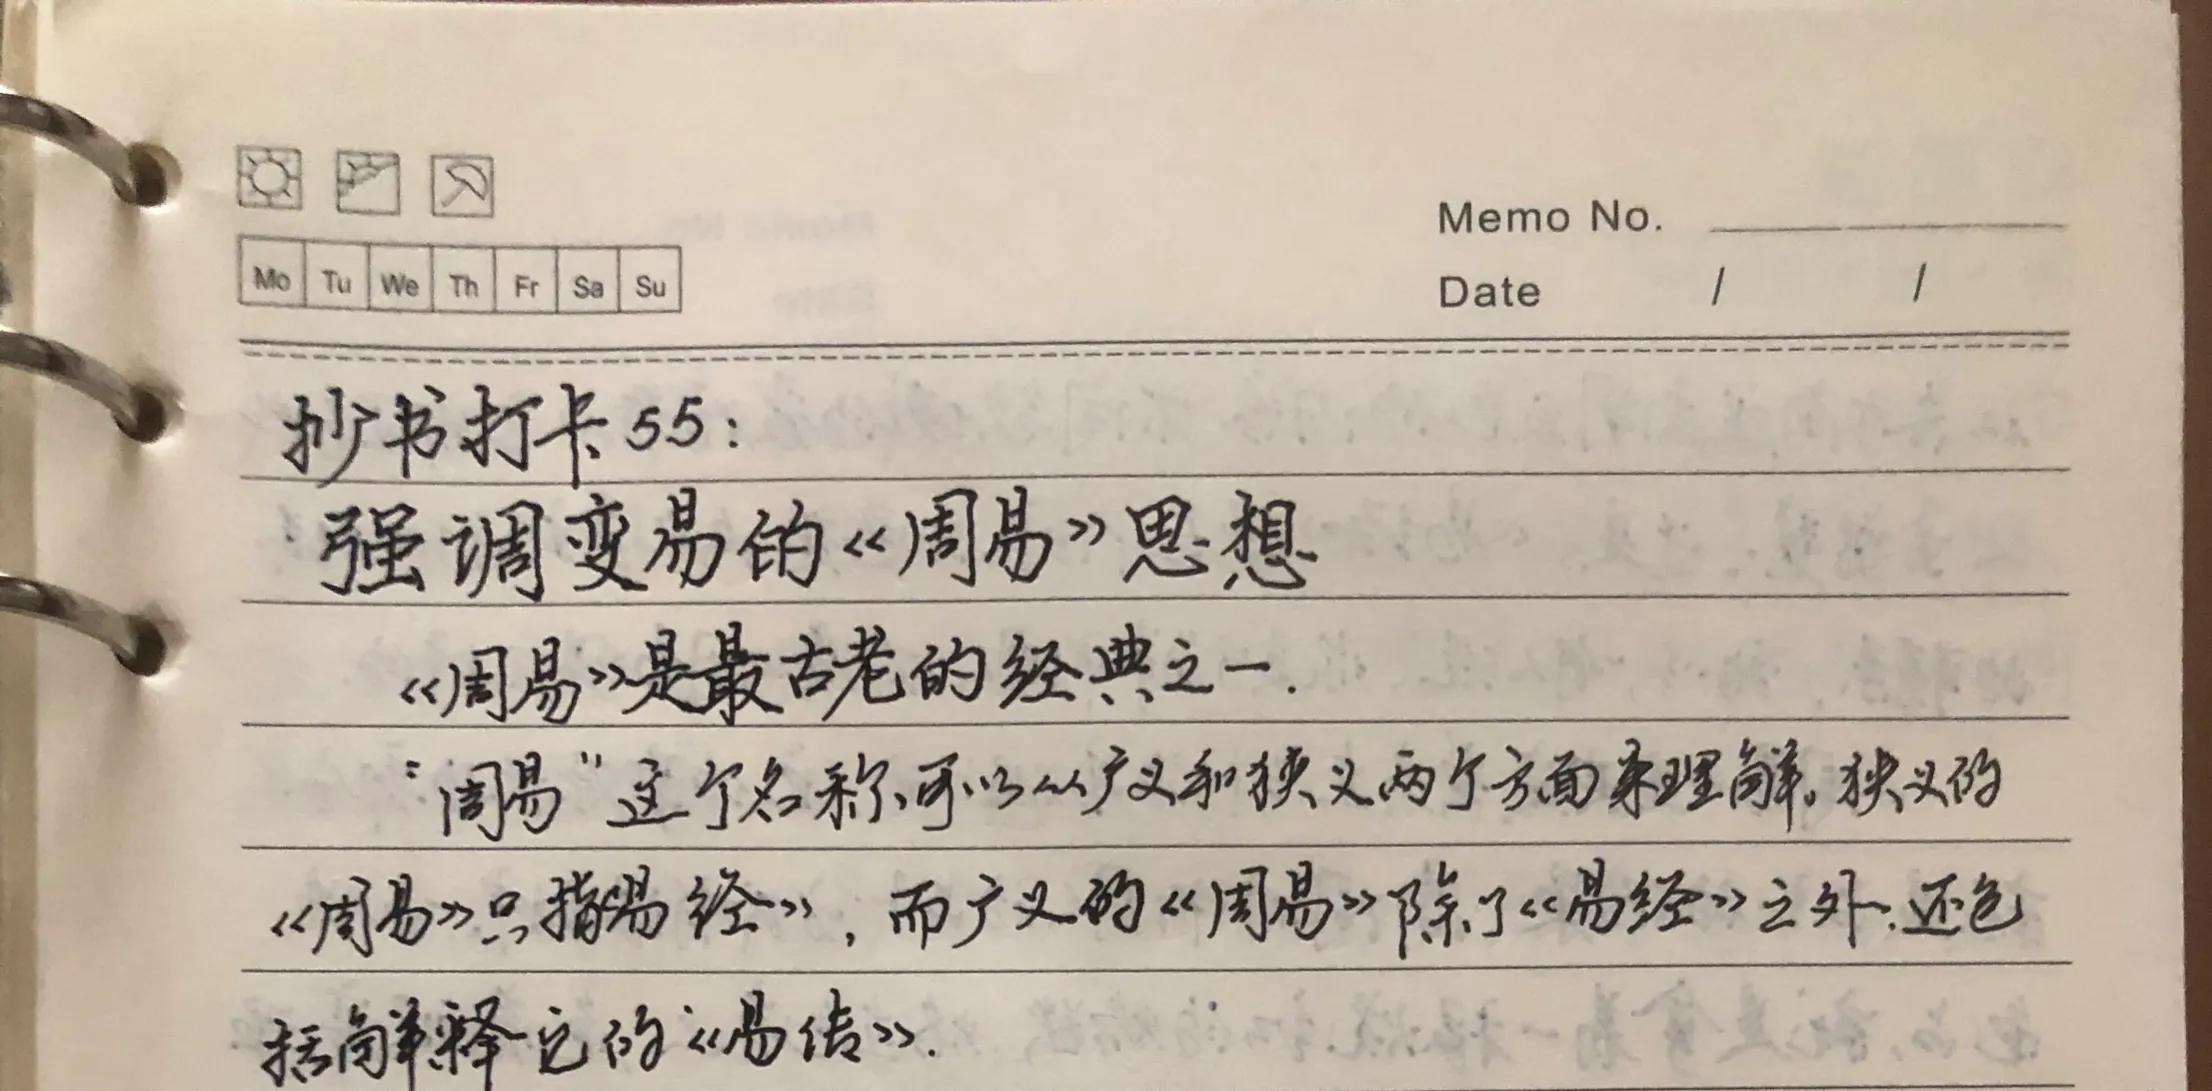 Mo Tu We Th Fr Sa Su
Memo No.
Date / /
抄书打卡55:
强调变易的《周易》思想
《周易》是最古老的经典之一.
“周易”这个名称、可以从广义和狭义两个方面来理解。狭义的
《周易》只指易经》,而广义的《周易》除了《易经》之外、还包
括解释它的《易传》.